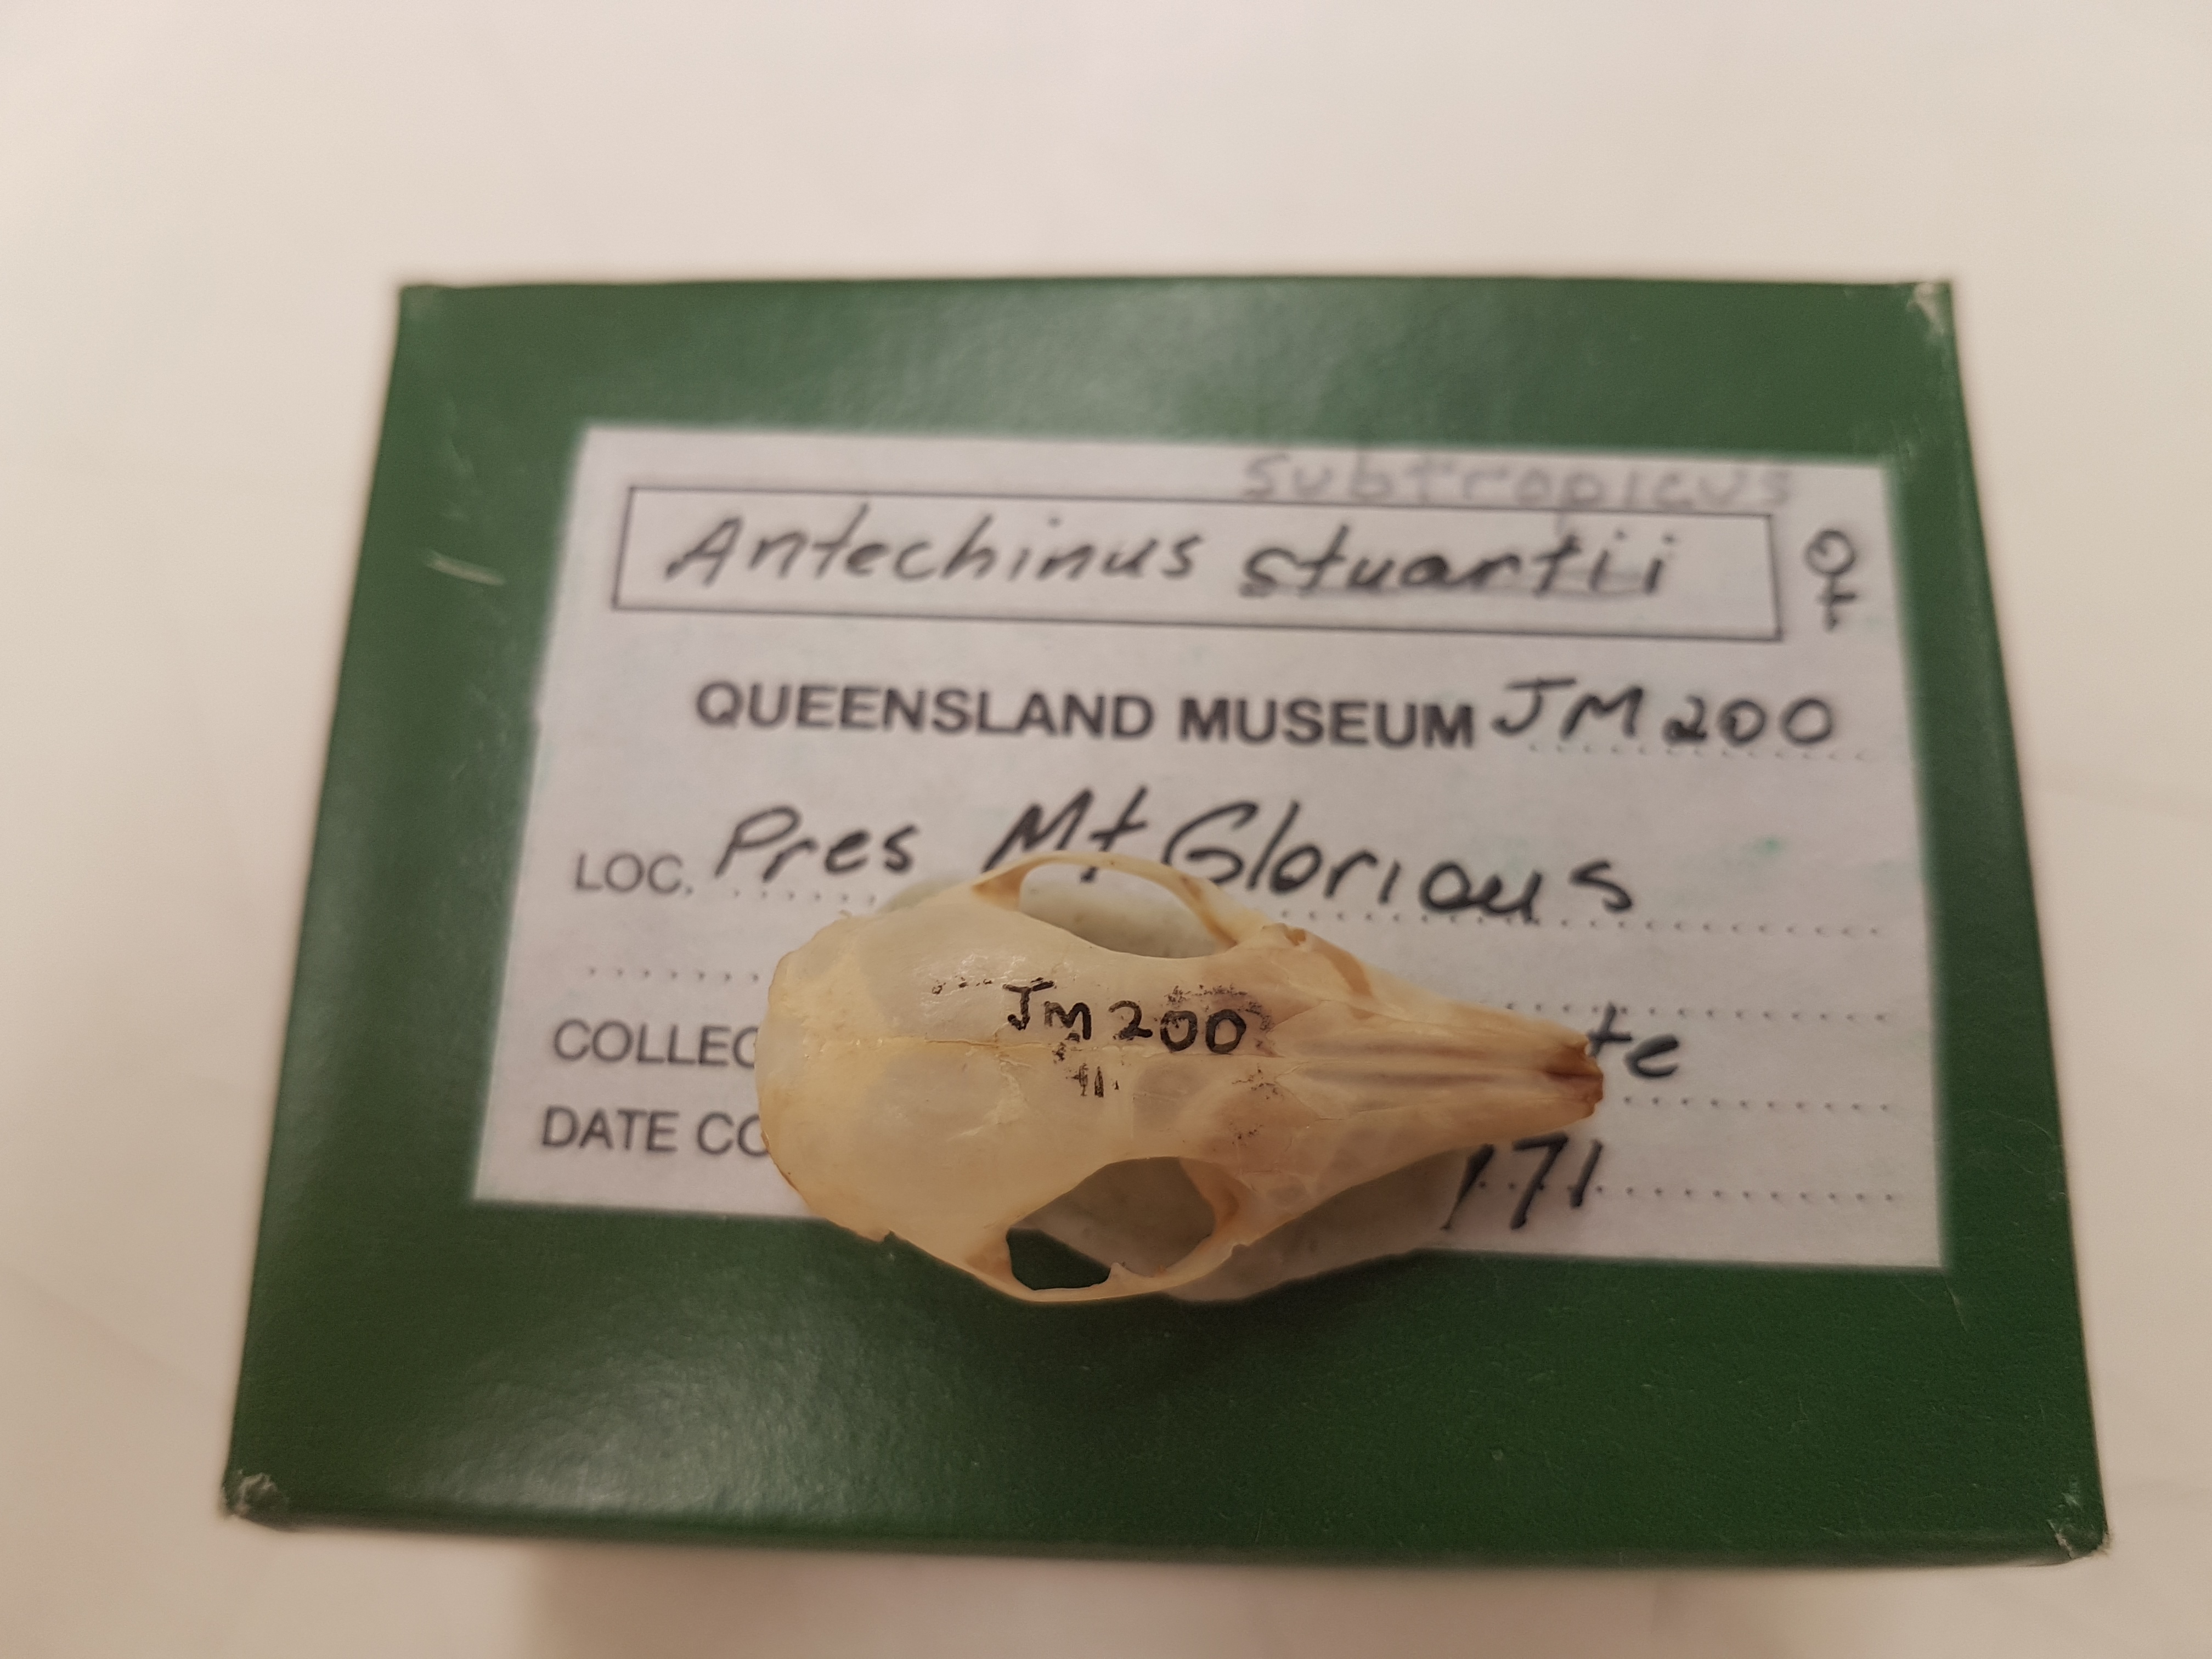 subtropicus
Antechinus stuartii ♀
QUEENSLAND MUSEUM JM200
LOC. Pres Mt Glorious
COLLEC
te
DATE CO
171
JM200